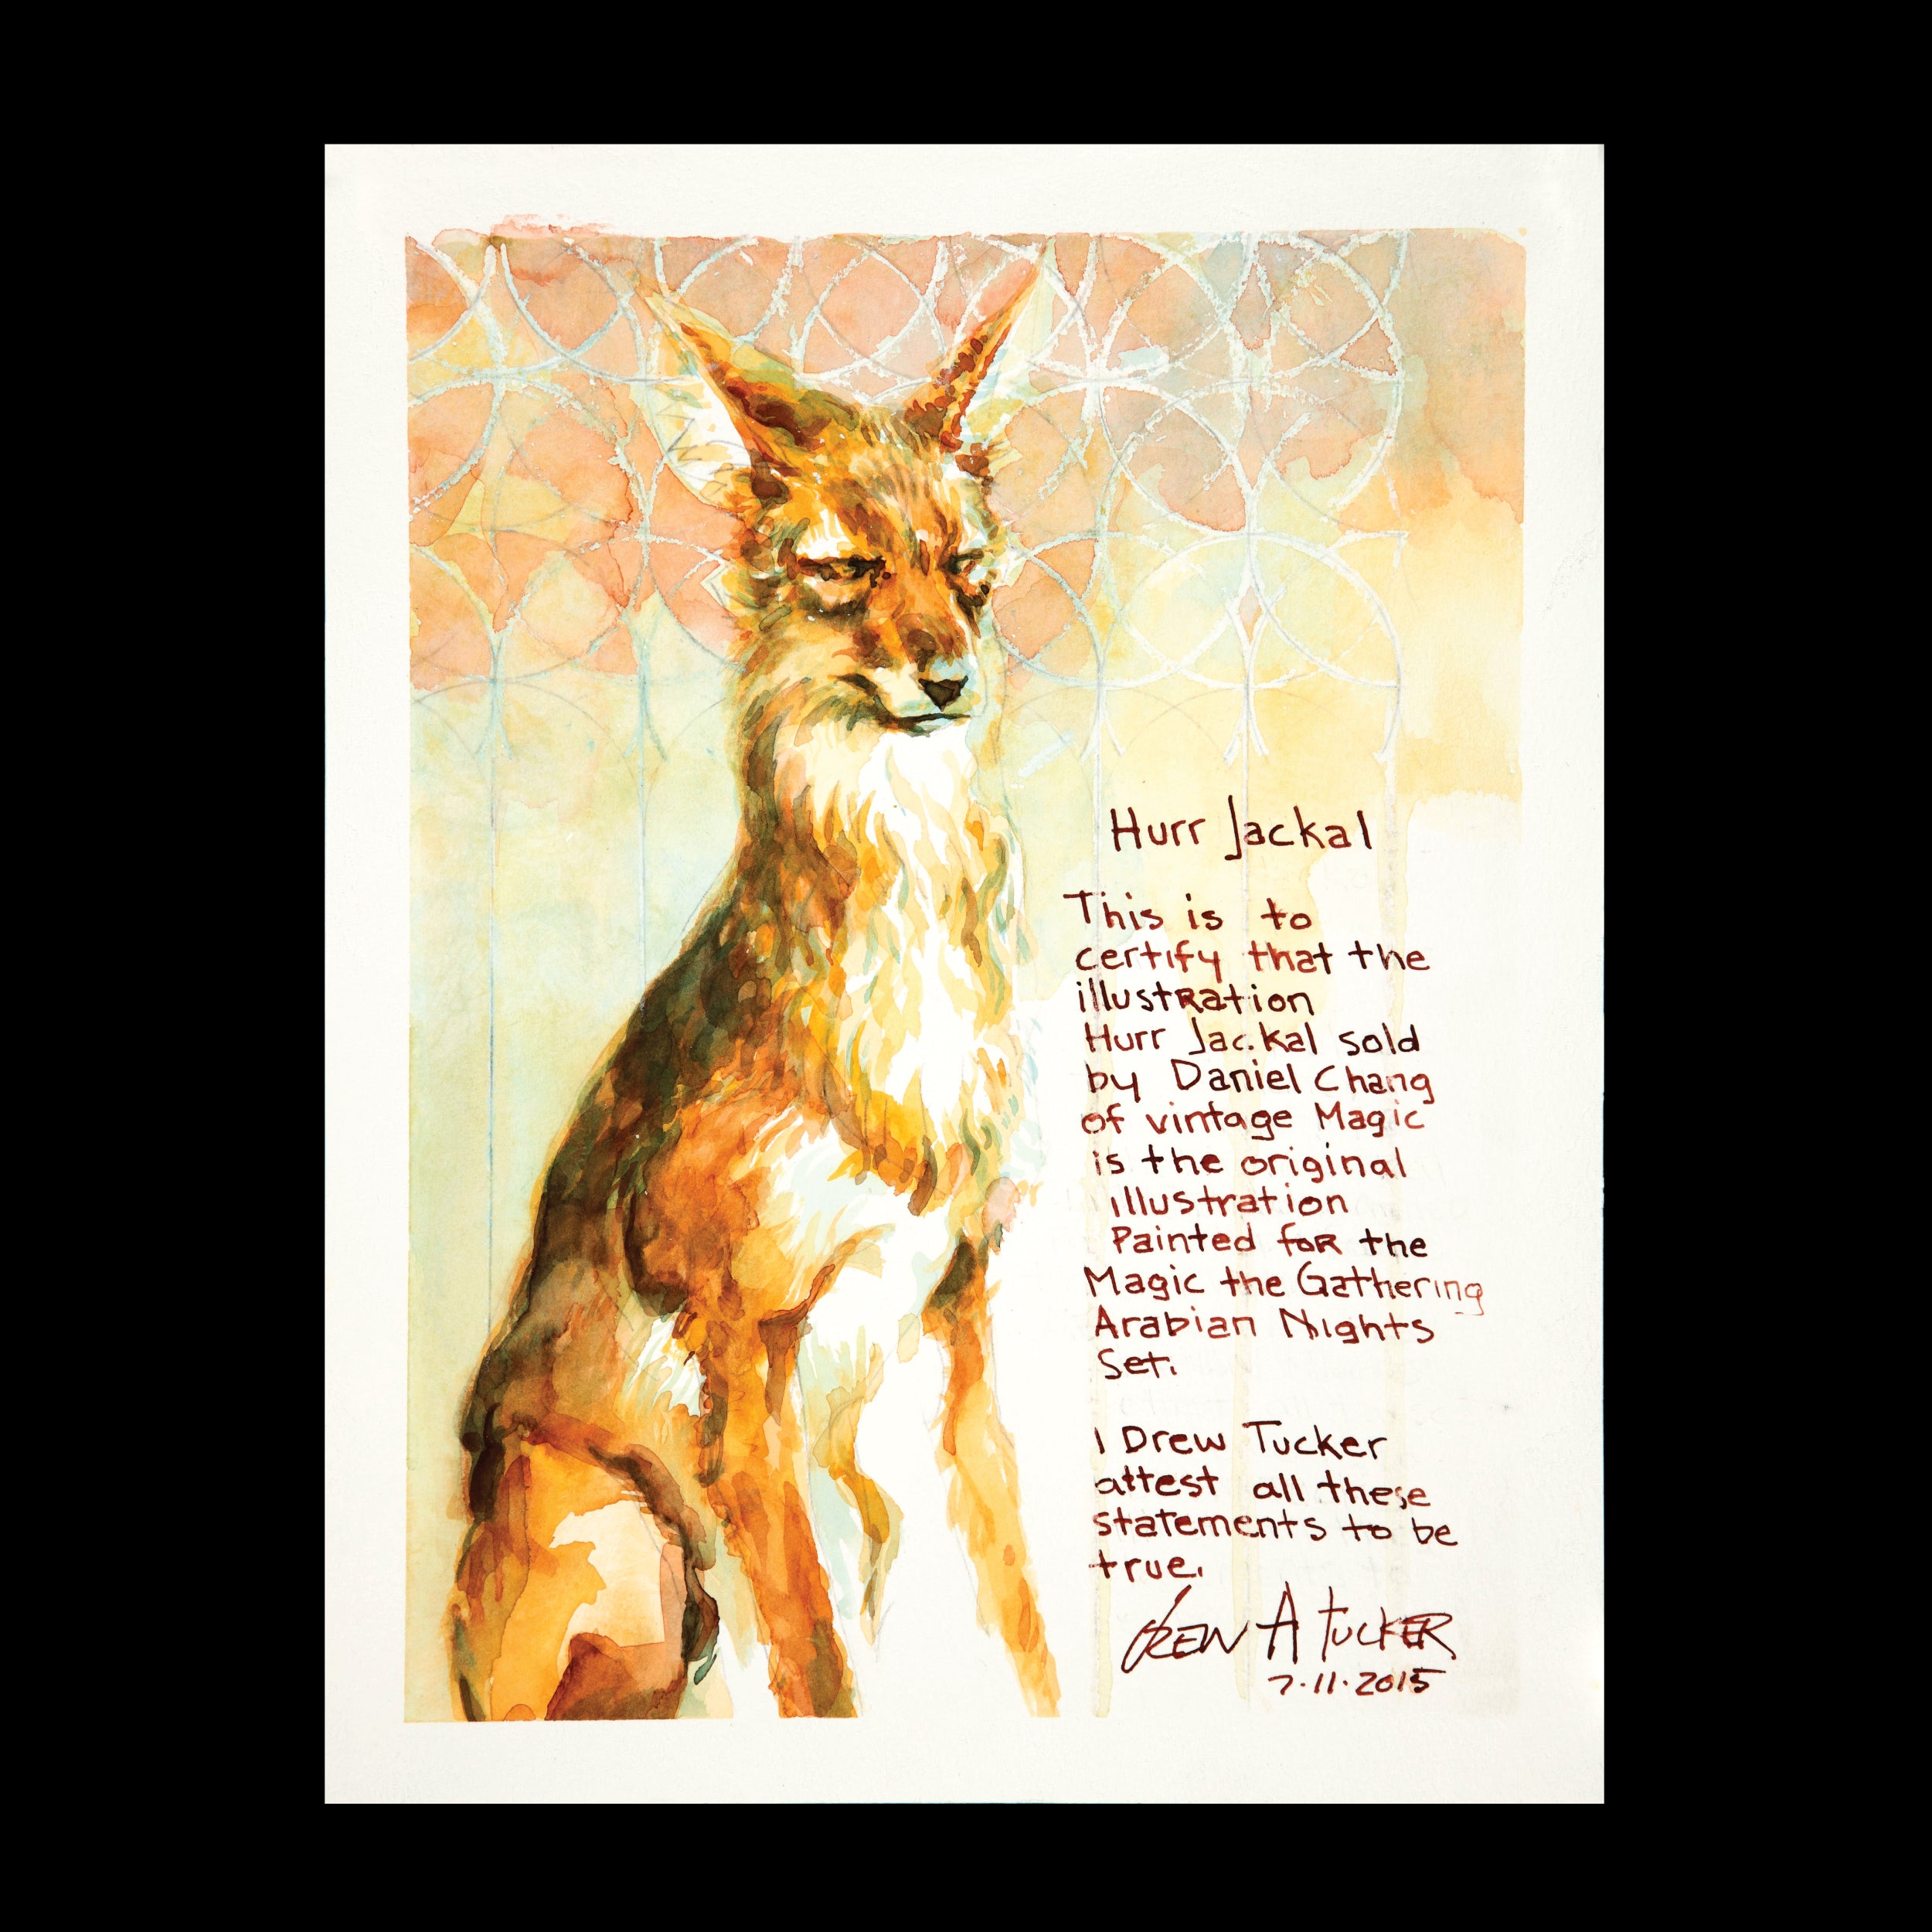 Hurr Jackal
This is to
certify that the
illustration
Hurr Jackal sold
by Daniel Chang
of vintage Magic
is the original
illustration
Painted for the
Magic the Gathering
Arabian Nights
Set.
I Drew Tucker
attest all these
statements to be
true.
Drew A Tucker
7.11.2015